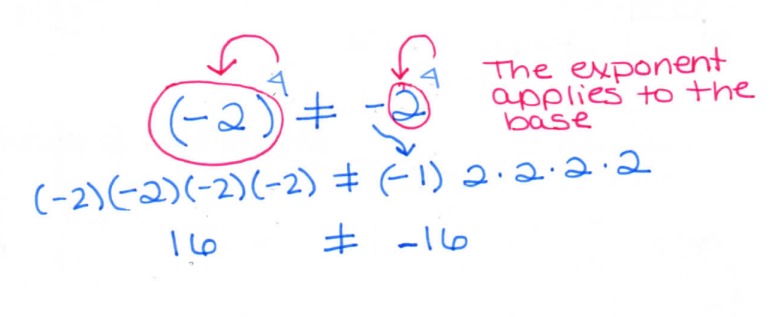 (-2)⁴ ≠ -2⁴
The exponent
applies to the
base
(-2)(-2)(-2)(-2) ≠ (-1) 2·2·2·2
16 ≠ -16